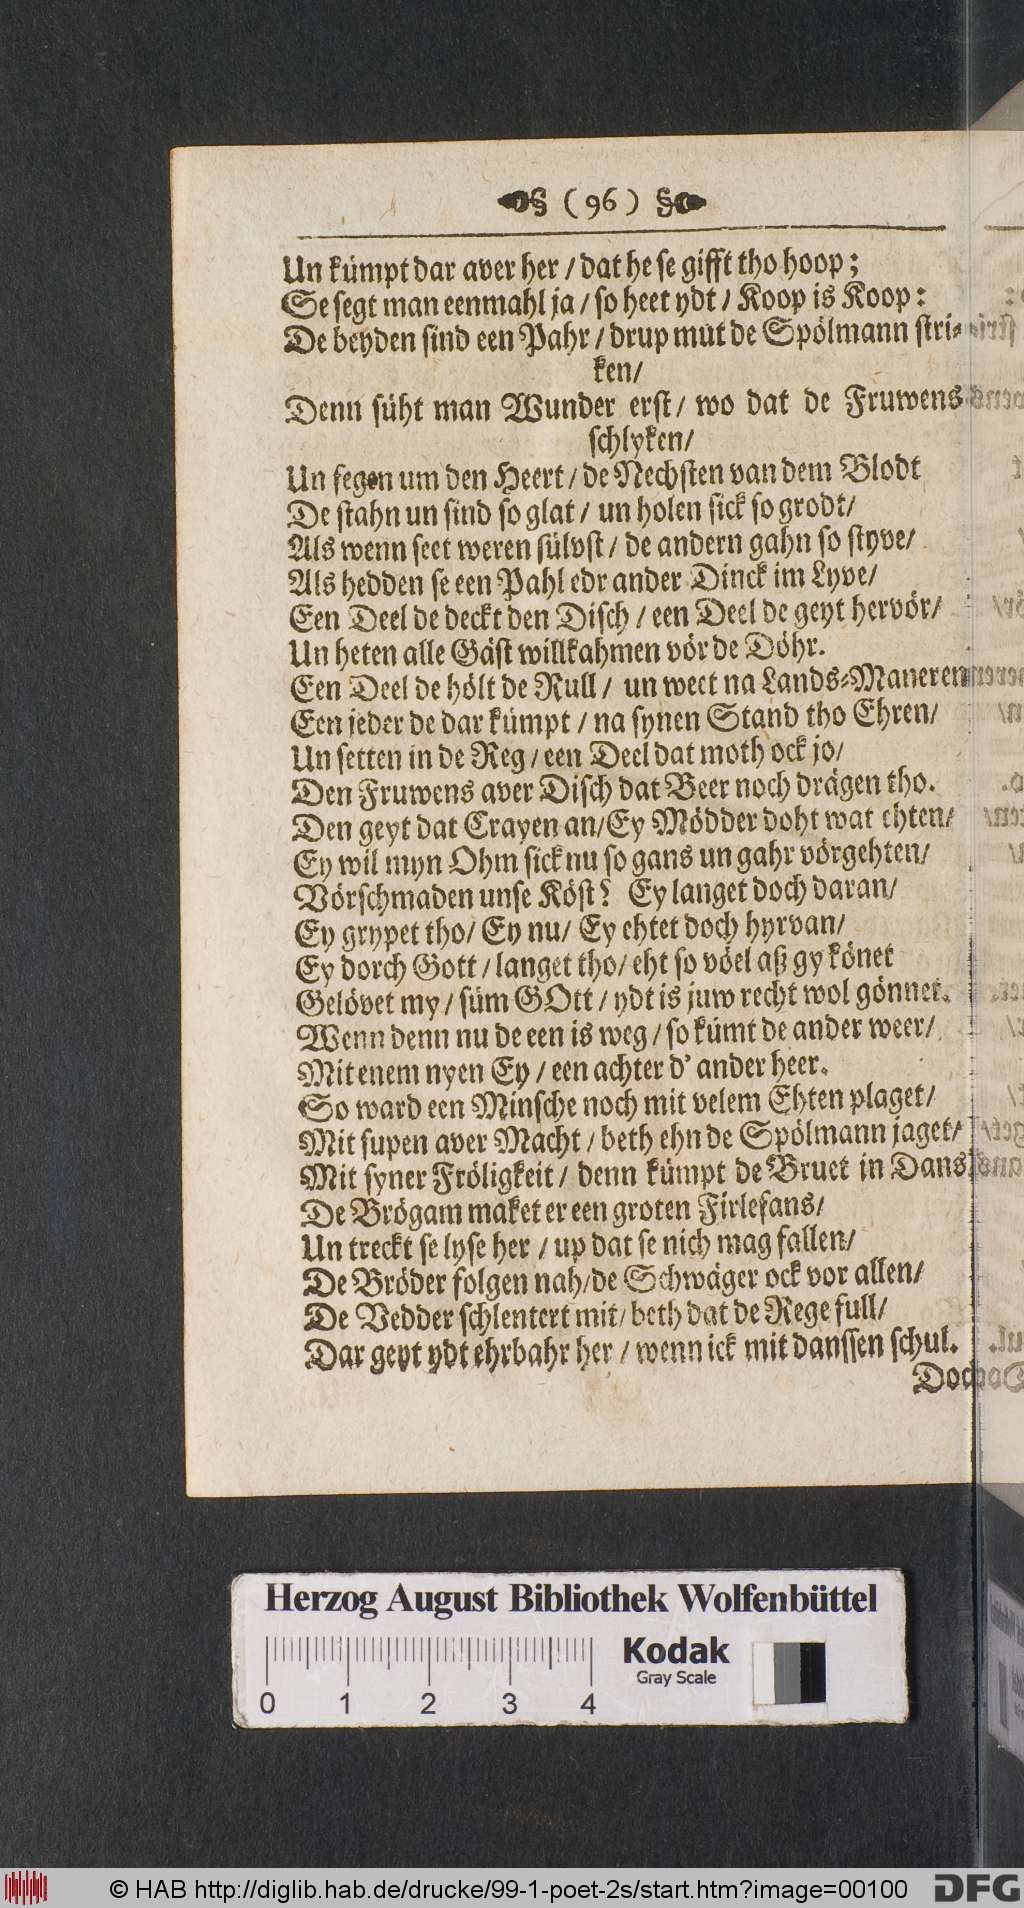 § ( 96 ) §
Un kümpt dar aver her / dat he se gifft tho hoop;
Se segt man eenmahl ja / so heet ydt / Koop is Koop:
De beyden sind een Pahr / drup mut de Spölmann stri-
ken/
Denn süht man Wunder erst / wo dat de Fruwens
schlyken/
Un fegen um den Heert / de Nechsten van dem Blodt
De stahn un sind so glat / un holen sick so grodt/
Als wenn seet weren sülvst / de andern gahn so styve/
Als hedden se een Pahl edr ander Dinck im Lyve/
Een Deel de deckt den Disch / een Deel de geyt hervör/
Un heten alle Gäst willkahmen vör de Döhr.
Een Deel de hölt de Rull / un weet na Lands-Maneren
Een jeder de dar kümpt / na synen Stand tho Ehren/
Un setten in de Reg / een Deel dat moth ock jo/
Den Fruwens aver Disch dat Beer noch drägen tho.
Den geyt dat Crayen an/Ey Mödder doht wat ehten/
Ey wil myn Ohm sick nu so gans un gahr vörgehten/
Vörschmaden unse Köst? Ey langet doch daran/
Ey grypet tho/ Ey nu/ Ey ehtet doch hyrvan/
Ey dorch Gott / langet tho/ eht so vöel aß gy könet
Gelövet my / süm GOtt / ydt is juw recht wol gönnet.
Wenn denn nu de een is weg / so kümt de ander weer/
Mit enem nyen Ey / een achter d' ander heer.
So ward een Minsche noch mit velem Ehten plaget/
Mit supen aver Macht / beth ehn de Spölmann jaget/
Mit syner Fröligkeit / denn kümpt de Bruet in Dans
De Brögam maket er een groten Firlefans/
Un treckt se lyse her / up dat se nich mag fallen/
De Bröder folgen nah/de Schwäger ock vor allen/
De Vedder schlentert mit/ beth dat de Rege full/
Dar geyt ydt ehrbahr her / wenn ick mit danssen schul.
Doch
Herzog August Bibliothek Wolfenbüttel
Kodak
Gray Scale
0 1 2 3 4
© HAB http://diglib.hab.de/drucke/99-1-poet-2s/start.htm?image=00100
DFG